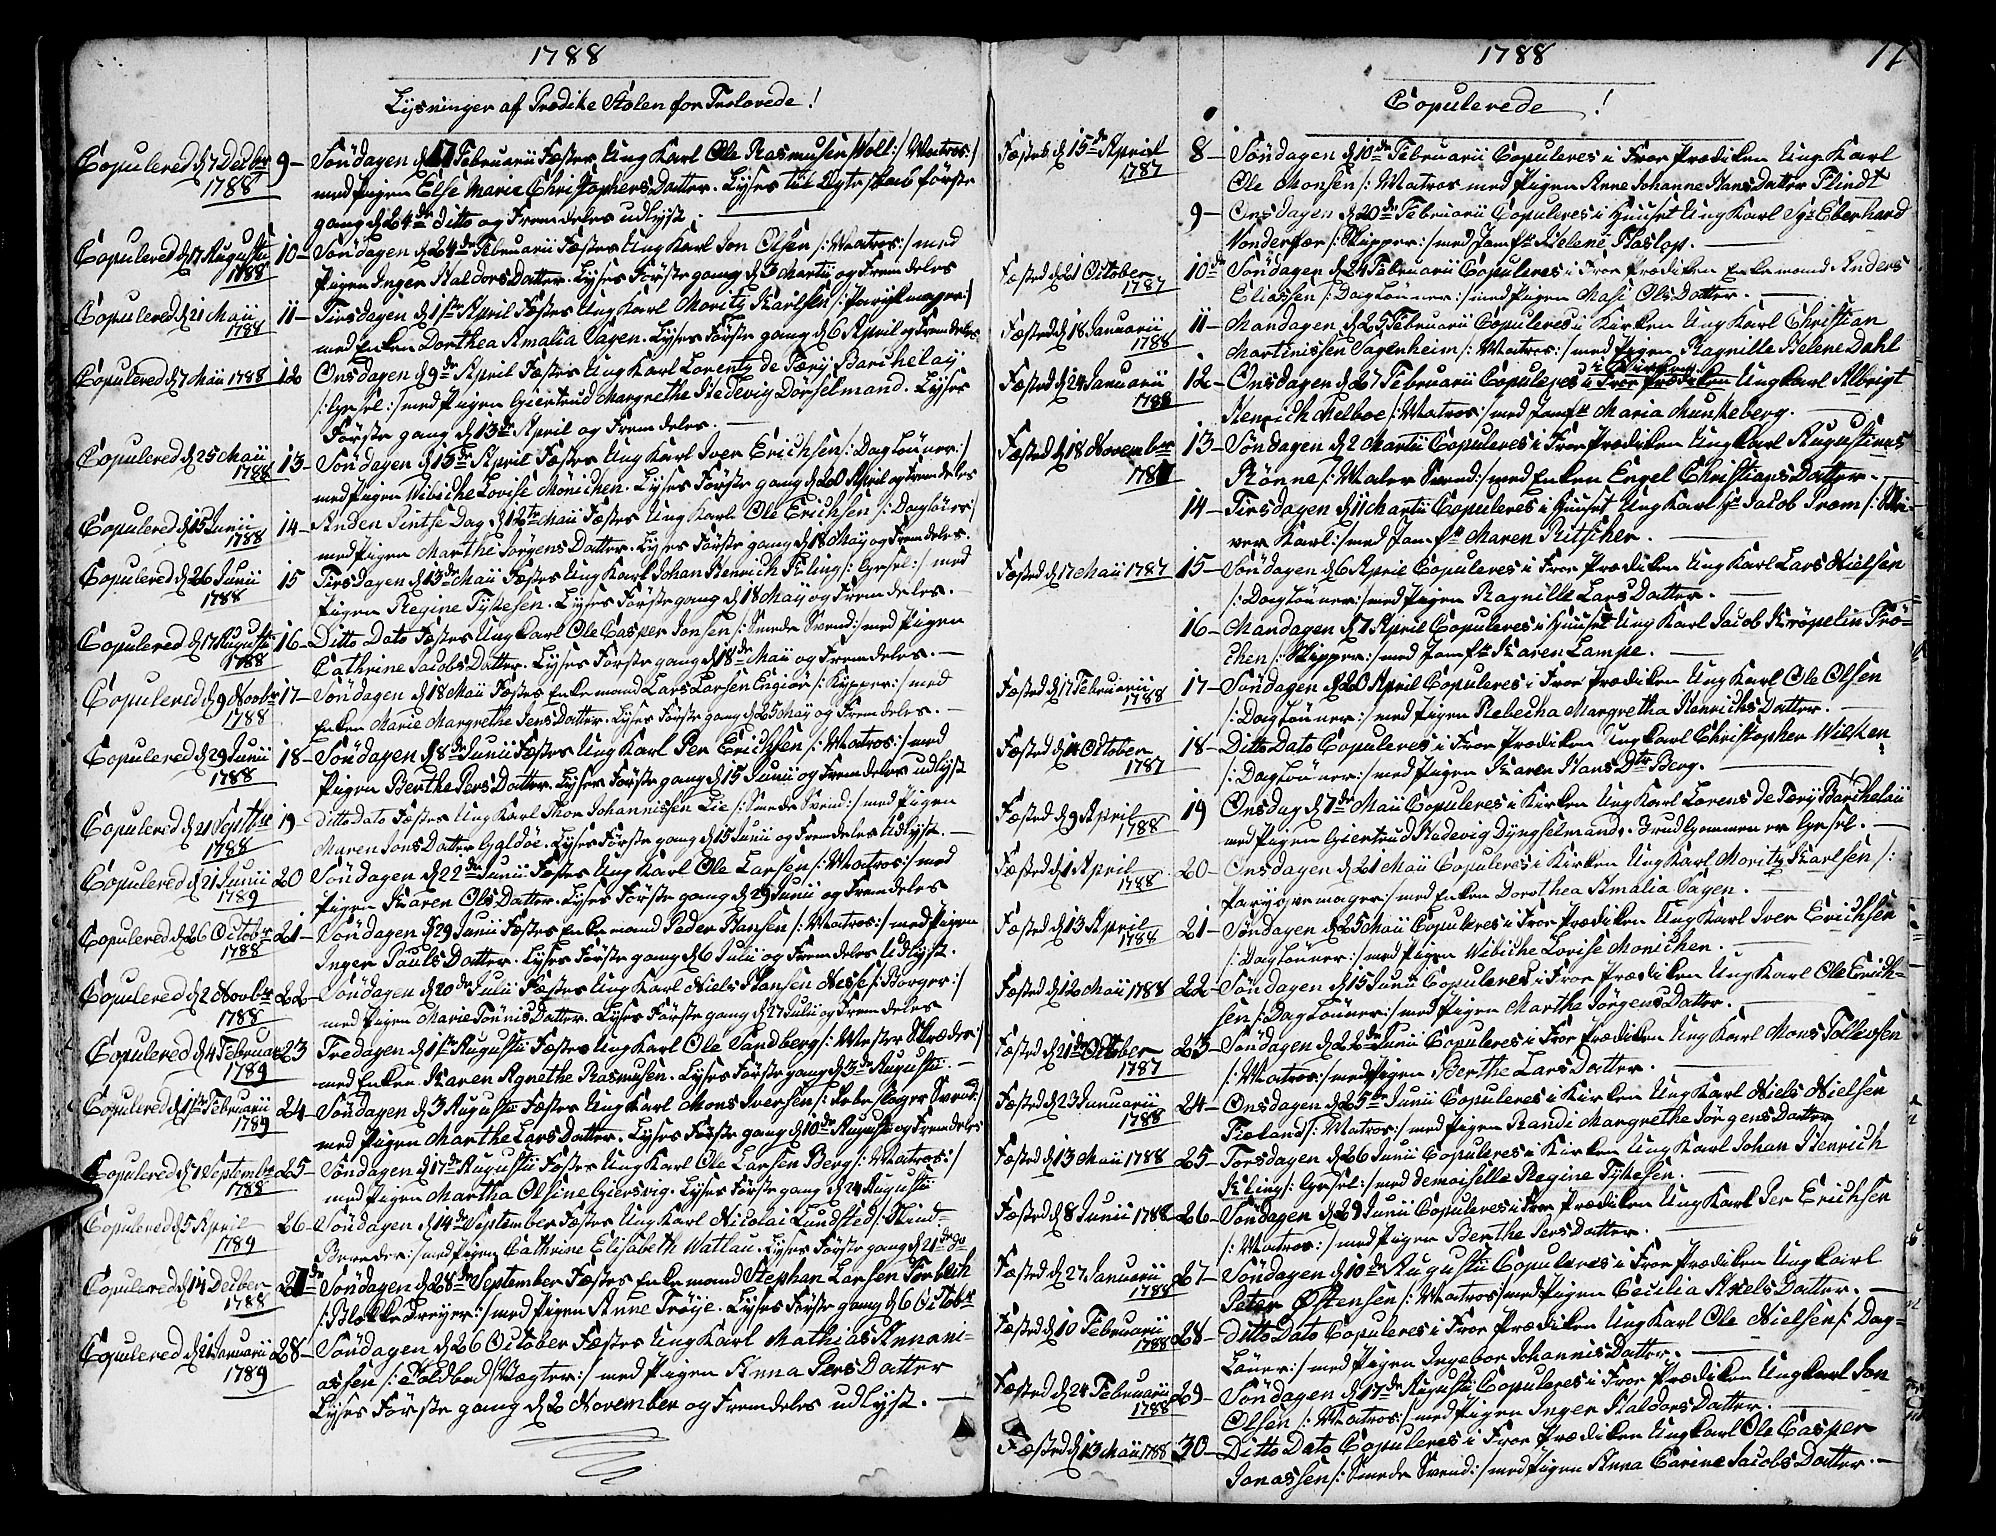 1788
Lysninger af Prædike Stolen for Trolovede!
Copulered d 7 Decbr 1788
9 - Søndagen d 17 Februarii Fæstes Ung Karl Ole Rasmusen Woll /: Matros:/
med Pigen Else Marie Christophers Datter. Lyses til Ægteskab første
gang d 24de ditto og Fremdeles udlyst.
Copulered d 17 Augustii 1788
10 - Søndagen d 24de Februarii Fæstes Ung Karl Jon Olsen /: Matros:/ med
Pigen Inger Haldors Datter. Lyses Første gang d 3 Martii og Fremdeles
Copulered d 21 Maii 1788
11 - Tirsdagen d 1ste April Fæstes Ung Karl Moritz Karlsen /: Parykmager:/
med Enken Dorthea Amalia Sagen. Lyses Første gang d 6 April og Fremdeles
Copulered d 7 Maii 1788
12 Onsdagen d 9de April Fæstes Ung Karl Lorentz de Færy Barchelay
/: Gesel:/ med Pigen Giertrud Margrethe Hedevig Dörselmand. Lyses
Første gang d 13de April og Fremdeles.
Copulered d 25 Maii 1788
13 - Søndagen d 13de April Fæstes Ung Karl Iver Erichsen /: Dagløner:/
med Pigen Wibiche Lovise Mönichen. Lyses Første gang d 20 April og Fremdeles
Copulered d 15 Junii 1788
14 - Anden Pintse Dag d 12te Maii Fæstes Ung Karl Ole Erichsen /: Dagløner/
med Pigen Marthe Jörgens Datter. Lyses Første gang d 18 Maij og Fremdeles.
Copulered d 26 Junii 1788
15 Tirsdagen d 13de Maii Fæstes Ung Karl Johan Henrich Kling /: Gesel:/ med
Pigen Regine Tykesen. Lyses Første gang d 18 Maij og Fremdeles.
Copulered d 17 Augustii 1788
16 - Ditto Dato Fæstes Ung Karl Ole Casper Jonsen /: Smede Svend:/ med Pigen
Cathrine Jacobs Datter. Lyses Første gang d 18de Maii og Fremdeles.
Copulered d 9 Novbr 1788
17 - Søndagen d 18 Maii Fæstes Enkemand Lars Larsen Engiør /: Kypper:/ med
Enken Marie Margrethe Jens Datter. Lyses Første gang d 25 Maij og Fremdeles.
Copulered d 29 Junii 1788
18 - Søndagen d 8de Junii Fæstes Ung Karl Per Erichsen /: Matros:/ med
Pigen Berthe Pers Datter. Lyses Første gang d 15 Junii og Fremdeles udlyst
Copulered d 21 Septbr 1788
19 - Ditto Dato Fæstes Ung Karl Thor Johannissen Lie /: Smede Svend:/ med Pigen
Maren Jons Datter Galdöe. Lyses Første gang d 15 Junii og Fremdeles Udlyst.
Copulered d 21 Junii 1789
20 Søndagen d 22de Junii Fæstes Ung Karl Ole Larsen /: Matros:/ med
Pigen Karen Ols Datter. Lyses Første gang d 29 Junii og Fremdeles
Copulered d 26 Octobr 1788
21 - Søndagen d 29 Junii Fæstes Enkemand Peder Hansen /: Matros:/ med Pigen
Inger Pauls Datter. Lyses Første gang d 6 Julii og Fremdeles Udlyst.
Copulered d 2 Novbr 1788
22 - Søndagen d 20de Julii Fæstes Ung Karl Niels Hansen Nesse /: Borger:/
med Pigen Marie Tönnis Datter. Lyses Første gang d 27 Julii og Fremdeles
Copulered d 4 Februar 1789
23 Fredagen d 1ste Augustii Fæstes Ung Karl Ole Sandberg /: Mester Skræder:/
med Enken Karen Agnethe Rasmusen. Lyses Første gang d 3de Augustii.
Copulered d 1ste Februarii 1789
24 - Søndagen d 3 Augustii Fæstes Ung Karl Mons Iversen /: Rebeslager Svend:/
med Pigen Marthe Lars Datter. Lyses Første gang d 10de Augustii og Fremdeles
Copulered d 7 Septembr 1788
25 - Søndagen d 17de Augustii Fæstes Ung Karl Ole Larsen Berg /: Matros:/
med Pigen Martha Olsine Giersvig. Lyses Første gang d 24 Augustii
Copulered d 5 April 1789
26 - Søndagen d 14de September Fæstes Ung Karl Nicolai Lundsted /:
med Pigen Cathrine Elisabeth Watlau. Lyses Første gang d 21de do
Copulered d 14 Decber 1788
27de Søndagen d 28de September Fæstes Enkemand Stephan Larsen Forbech
/: Blokke Dreyer:/ med Pigen Anne Tröye. Lyses Første gang d 6 Octobr
Copulered d 21 Januarii 1789
28 - Søndagen d 26 October Fæstes Ung Karl Mathias Annani-
assen /: Toldbod Vægter:/ med Pigen Anna Pers Datter
Lyses Første gang d 2 November og Fremdeles udlyst.
1788
17
Copulerede!
Fæsted d 15de April 1787
8 - Søndagen d 10de Februarii Copuleres i Fror Prædiken Ung Karl
Ole Monsen /: Matros med Pigen Anne Johanne Hans Datter Flindt
9 - Onsdagen d 20de Februarii Copuleres i Huuset Ung Karl Sr Eberhard
Vonderfær /: Skipper:/ med Jomfr Helene Haslop.
Fæsted d 21 October 1787
10de Søndagen d 24 Februarii Copuleres i Fror Prædiken Enkemand Anders
Eliassen /: Dagløner:/ med Pigen Masi Ols Datter.
Fæsted d 18 Januarii 1788
11 - Mandagen d 25 Februarii Copuleres i Kirken Ung Karl Christian
Martinissen Sagenheim /: Matros:/ med Pigen Ragnille Helene Dahl
Fæsted d 24 Januarii 1788
12 - Onsdagen d 27 Februarii Copuleres i Fror Prædiken Ung Karl Albrigt
Henrich Melboe /: Matros:/ med Jomfr Maria Munkeberg.
Fæsted d 18 November 1787
13 - Søndagen d 2 Martii Copuleres i Fror Prædiken Ung Karl Augustinus
Rönne /: Maler Svend:/ med Enken Engel Christians Datter.
14 - Tirsdagen d 11 Martii Copuleres i Huuset Ung Karl Sr Jacob From /: Skri-
ver Karl:/ med Jomfr Maren Ritscher.
Fæsted d 17 Maii 1787
15 - Søndagen d 6 April Copuleres i Fror Prædiken Ung Karl Lars Nielsen
/: Dagløner:/ med Pigen Ragnille Lars Datter.
16 - Mandagen d 7 April Copuleres i Huuset Ung Karl Jacob Kröpelin Frö-
chen /: Skipper:/ med Jomfr Karen Lampe.
Fæsted d 17 Februarii 1788
17 - Søndagen d 20 April Copuleres i Fror Prædiken Ung Karl Ole Olsen
/: Dagløner:/ med Pigen Rebecha Margretha Henrichs Datter.
Fæsted d October 1787
18 - Ditto Dato Copuleres i Fror Prædiken Ung Karl Christopher Wilsken
/: Dagløner:/ med Pigen Karen Hans Dtr Berg.
Fæsted d 9 April 1788
19 Onsdag d 7de Maii Copuleres i Kirken Ung Karl Lorens de Ferij Barchelaii
med Pigen Giertrud Hadevig Dyngselmand. Brudgommen er Gesel.
Fæsted d 1 April 1788
20 - Onsdagen d 21 Maii Copuleres i Kirken Ung Karl Moritz Karlsen /:
Parygvemager:/ med Enken Dorothea Amalia Sagen.
Fæsted d 13 April 1788
21 - Søndagen d 25 Maii Copuleres i Fror Prædiken Ung Karl Iver Erichsen
/: Dagløner:/ med Pigen Wibiche Lovise Monichen.
Fæsted d 12 Maii 1788
22 - Søndagen d 15 Junii Copuleres i Fror Prædiken Ung Karl Ole Erich-
sen /: Dagløner:/ med Pigen Marthe Jörgens Datter.
Fæsted d 21de October 1787
23 - Søndagen d 22de Junii Copuleres i Fror Prædiken Ung Karl Mons Tollevsen
/: Matros:/ med Pigen Berthe Lars Datter.
Fæsted d 23 Januarii 1788
24 - Onsdagen d 25de Junii Copuleres i Kirken Ung Karl Niels Nielsen
Fieland /: Matros:/ med Pigen Randi Margrethe Jörgens Datter
Fæsted d 13 Maii 1788
25 - Torsdagen d 26 Junii Copuleres i Kirken Ung Karl Johan Henrich
Kling /: Gesel:/ med Demoiselle Regine Tykesen.
Fæsted d 8 Junii 1788
26 - Søndagen d 29 Junii Copuleres i Fror Prædiken Ung Karl Per Erichsen
/: Matros:/ med Pigen Berthe Pers Datter.
Fæsted d 27 Januarii 1788
27 - Søndagen d 10de Augustii Copuleres i Fror Prædiken Ung Karl
Peter Östensen /: Matros:/ med Pigen Cecilia Axels Datter.
Fæsted d 10 Februarii 1788
28 - Ditto Dato Copuleres i Fror Prædiken Ung Karl Ole Nielsen /: Dag-
Løner:/ med Pigen Ingebor Johannis Datter.
Fæsted d 24 Februarii 1788
29 - Søndagen d 17de Augustii Copuleres i Fror Prædiken Ung Karl Jon
Olsen /: Matros:/ med Pigen Inger Haldors Datter.
Fæsted d 13 Maii 1788
30 - Ditto Dato Copuleres i Fror Prædiken Ung Karl Ole Casper
Jonassen /: Smede Svend:/ med Pigen Anna Carine Jacobs Datter.